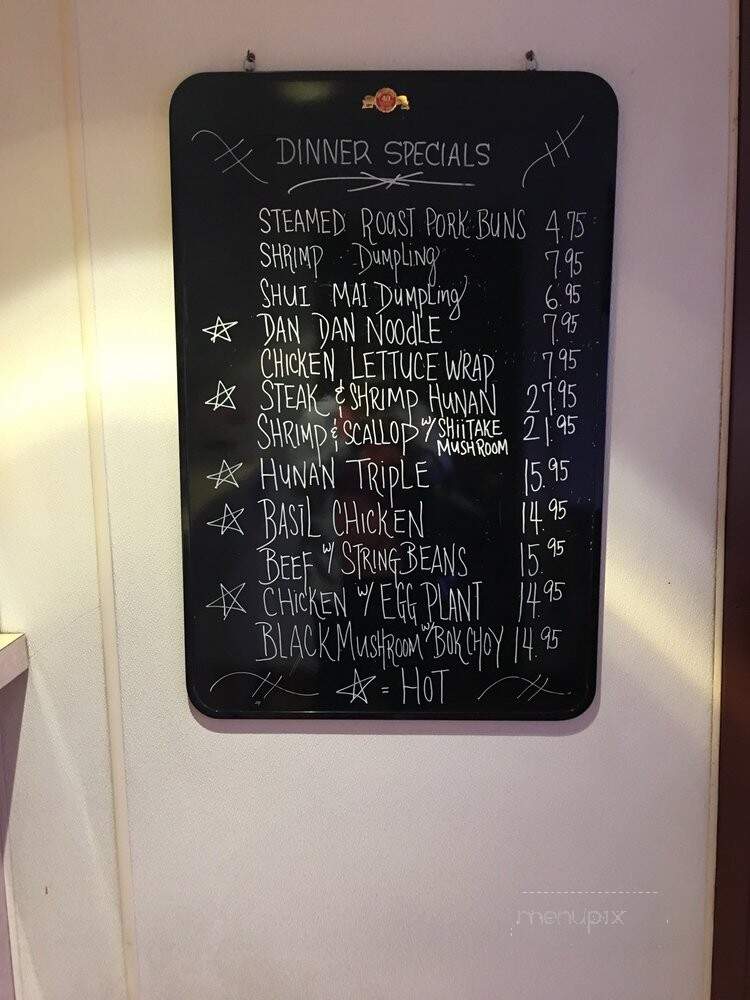 40
DINNER SPECIALS
STEAMED ROAST PORK BUNS 4.75
SHRIMP DUMPLING 7.95
SHUI MAI DUMPLING 6.95
☆ DAN DAN NOODLE 7.95
CHICKEN LETTUCE WRAP 7.95
☆ STEAK & SHRIMP HUNAN 27.95
SHRIMP & SCALLOP W/ SHIITAKE MUSHROOM 21.95
☆ HUNAN TRIPLE 15.95
☆ BASIL CHICKEN 14.95
BEEF W/ STRING BEANS 15.95
☆ CHICKEN W/ EGG PLANT 14.95
BLACK MUSHROOM W/ BOK CHOY 14.95
☆ = HOT
menupix